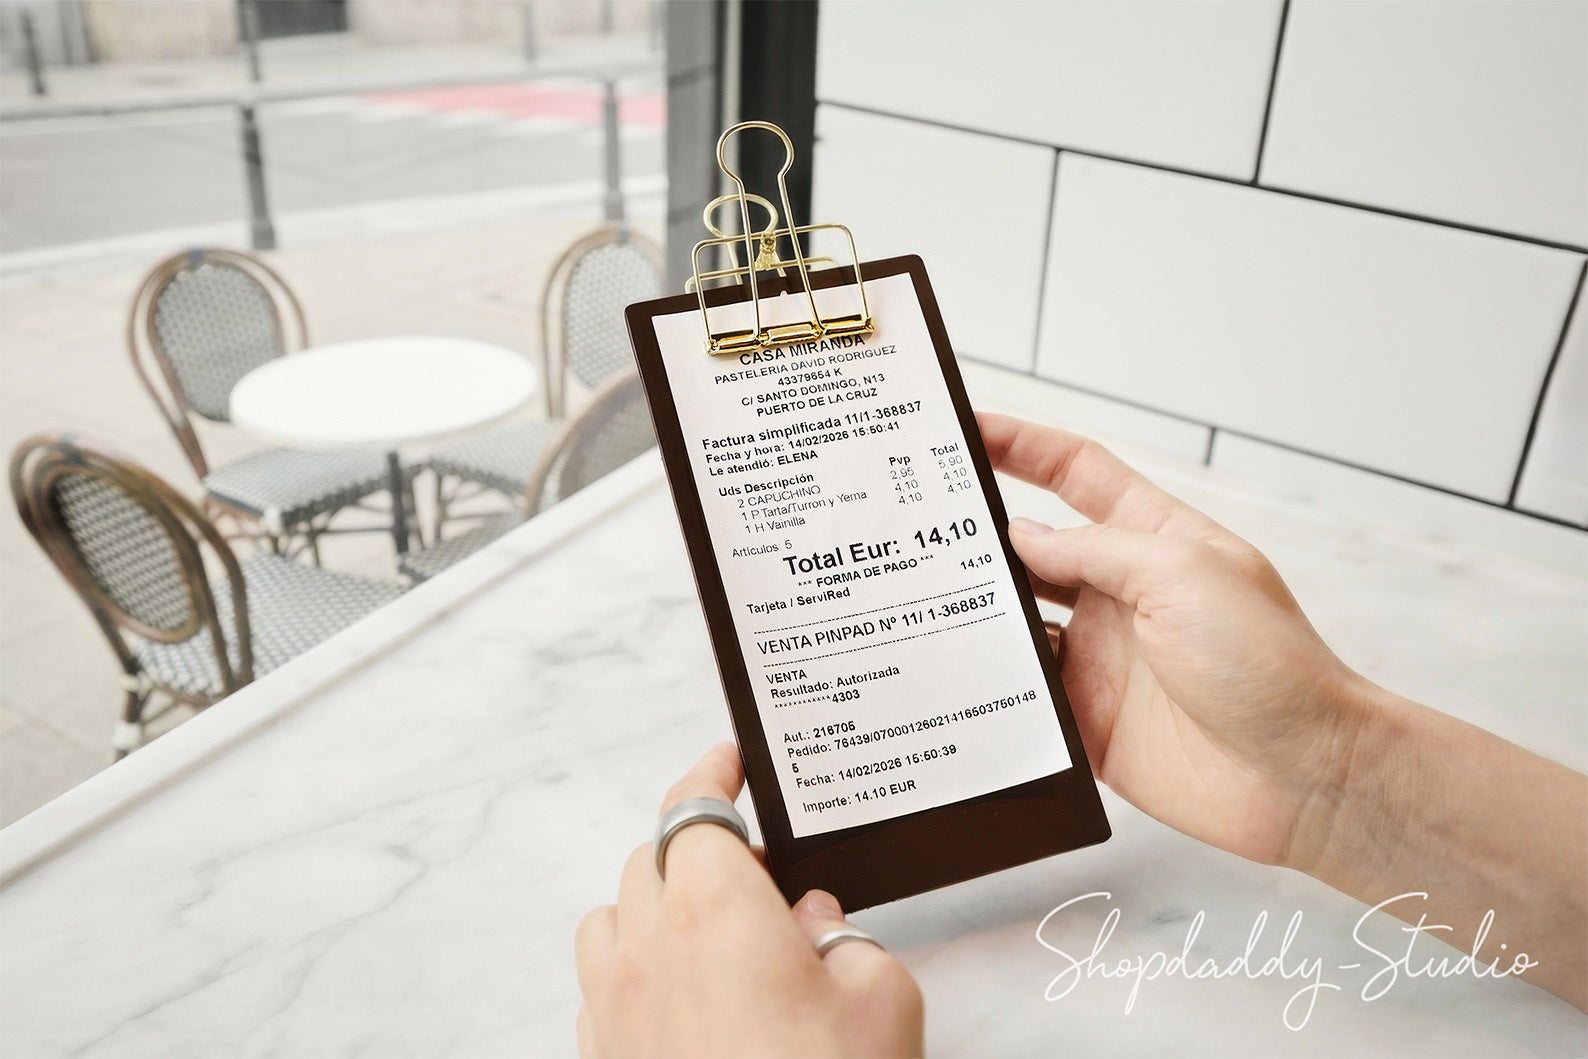 CASA MIRANDA
PASTELERIA DAVID RODRIGUEZ
43379654 K
C/ SANTO DOMINGO, N13
PUERTO DE LA CRUZ
Factura simplificada 11/1-368837
Fecha y hora: 14/02/2026 15:50:41
Le atendió: ELENA
Uds Descripción Pvp Total
2 CAPUCHINO 2,95 5,90
1 P.Tarta/Turron y Yema 4,10 4,10
1 H.Vainilla 4,10 4,10
Articulos: 5
Total Eur: 14,10
*** FORMA DE PAGO ***
Tarjeta / ServiRed 14,10
VENTA PINPAD Nº 11/ 1-368837
VENTA
Resultado: Autorizada
************4303
Aut.: 216705
Pedido: 76439/07000126021416503750148
5
Fecha: 14/02/2026 15:50:39
Importe: 14.10 EUR
Shopdaddy-Studio